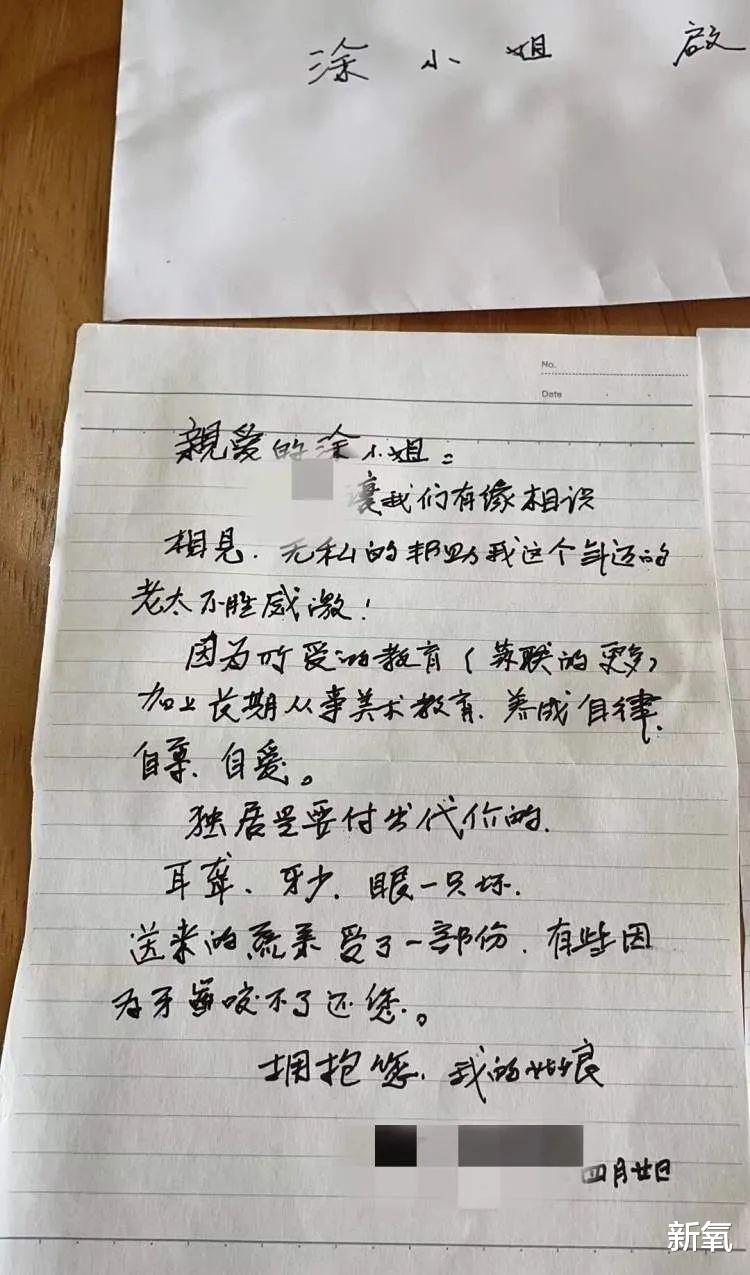 涂小姐 启
No.
Date
親爱的涂小姐：
让我们有缘相识
相見．无私的帮助我这个年迈的
老太不胜感激！
因为所受的教育（苏联的更多）
加上长期从事美术教育．养成自律．
自尊．自爱。
独居是要付出代价的．
耳聋．牙少．眼一只坏．
送来的蔬菜受了一部份．有些因
为牙齒咬不了还您。
拥抱您．我的姑娘
四月廿日
新氧